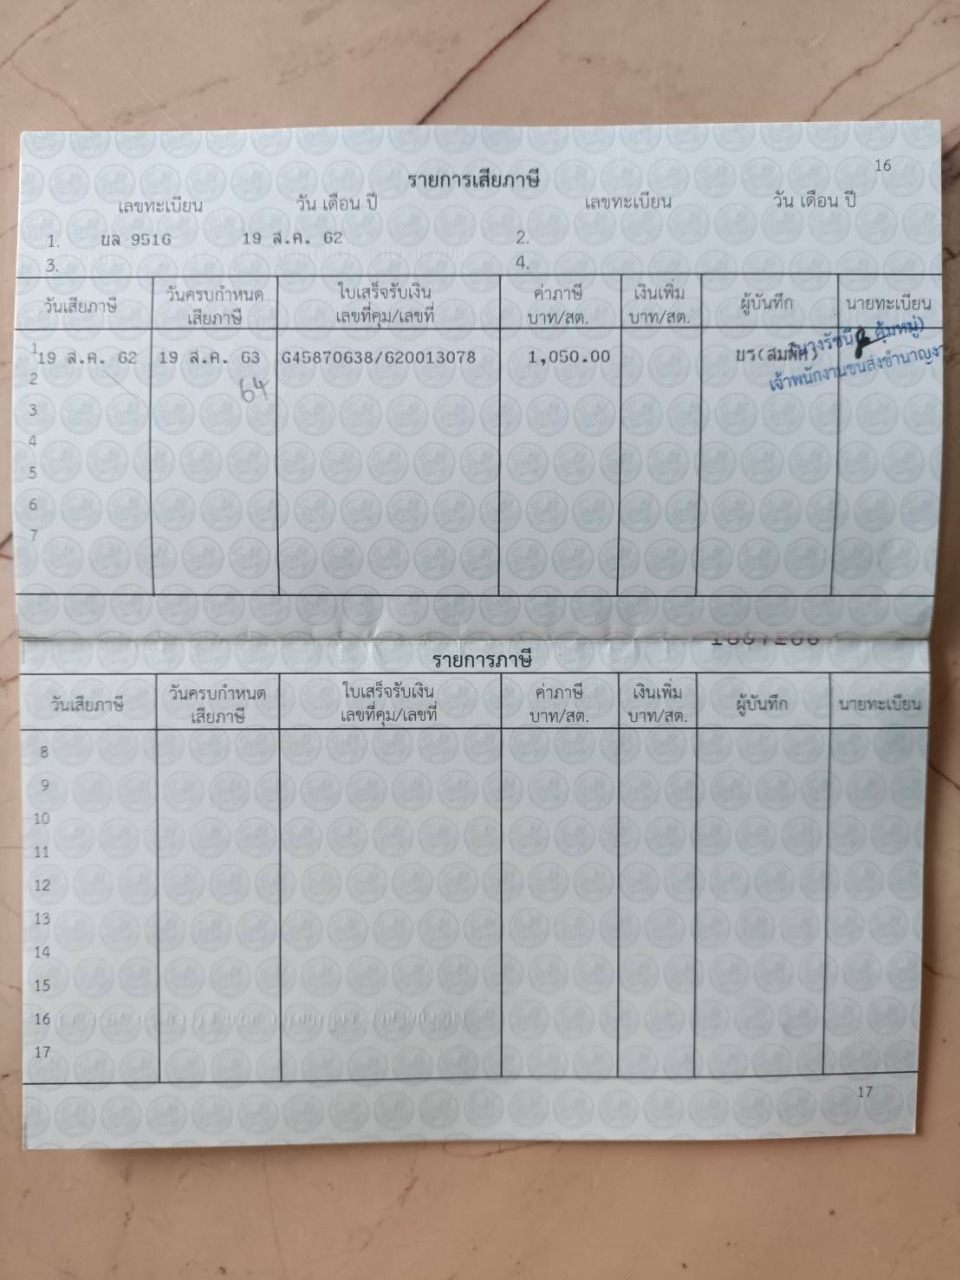 16
รายการเสียภาษี
เลขทะเบียน วัน เดือน ปี เลขทะเบียน วัน เดือน ปี
1. ขล 9516 19 ส.ค. 62 2.
3. 4.
วันเสียภาษี วันครบกำหนด เสียภาษี ใบเสร็จรับเงิน เลขที่คุม/เลขที่ ค่าภาษี บาท/สต. เงินเพิ่ม บาท/สต. ผู้บันทึก นายทะเบียน
1 19 ส.ค. 62 19 ส.ค. 63 G45870638/620013078 1,050.00
เจ้าพนักงานขนส่งชำนาญงา
2 64
3
4
5
6
7
รายการภาษี
วันเสียภาษี วันครบกำหนด เสียภาษี ใบเสร็จรับเงิน เลขที่คุม/เลขที่ ค่าภาษี บาท/สต. เงินเพิ่ม บาท/สต. ผู้บันทึก นายทะเบียน
8
9
10
11
12
13
14
15
16
17
17